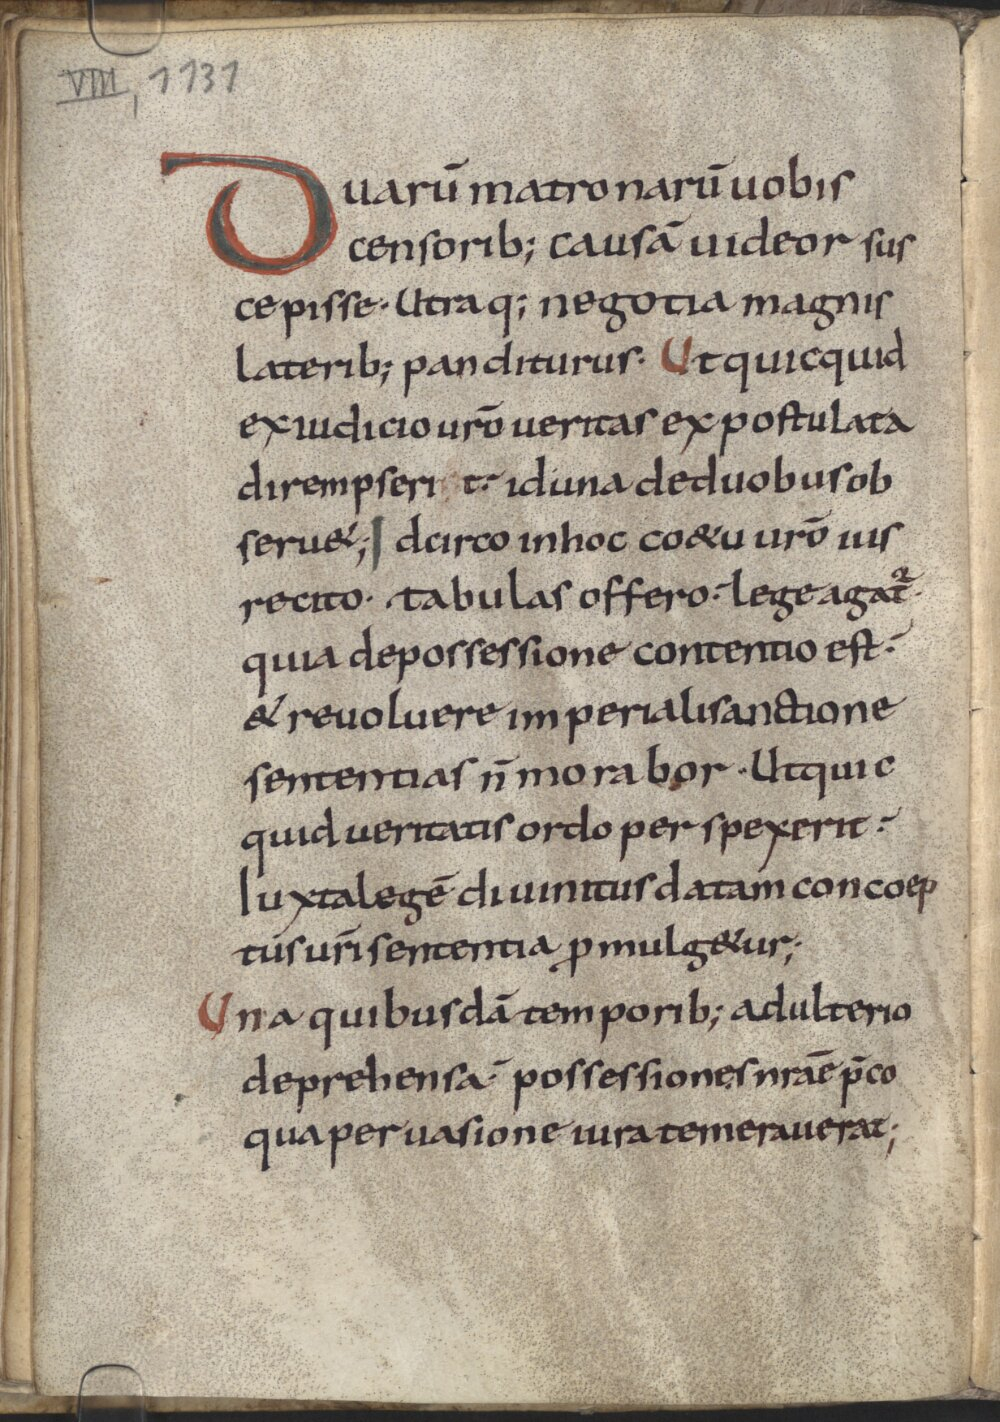 VIII, 1131
Duarū matronarū uobis
censorib; causā uideor sus
cepisse· Utraq; negotia magnis
laterib; panditurus· Ut quicquid
ex iudicio urō ueritas expostulata
dirempseri t· id una de duobus ob
seru&; Idcirco in hoc co&u urō ius
recito· tabulas offero· lege agat᷑·
quia de possessione contentio est·
& reuoluere imperiali sanctione
sententias n̄ morabor· Ut quic
quid ueritatis ordo perspexerit·
Iuxta legē diuinitus datam concoep
tus ur̄i sententia ꝓmulg&ur;
Una quibusdā temporib; adulterio
deprehensa· possessiones nrāe p̄co
qua peruasione iura temerauerat;